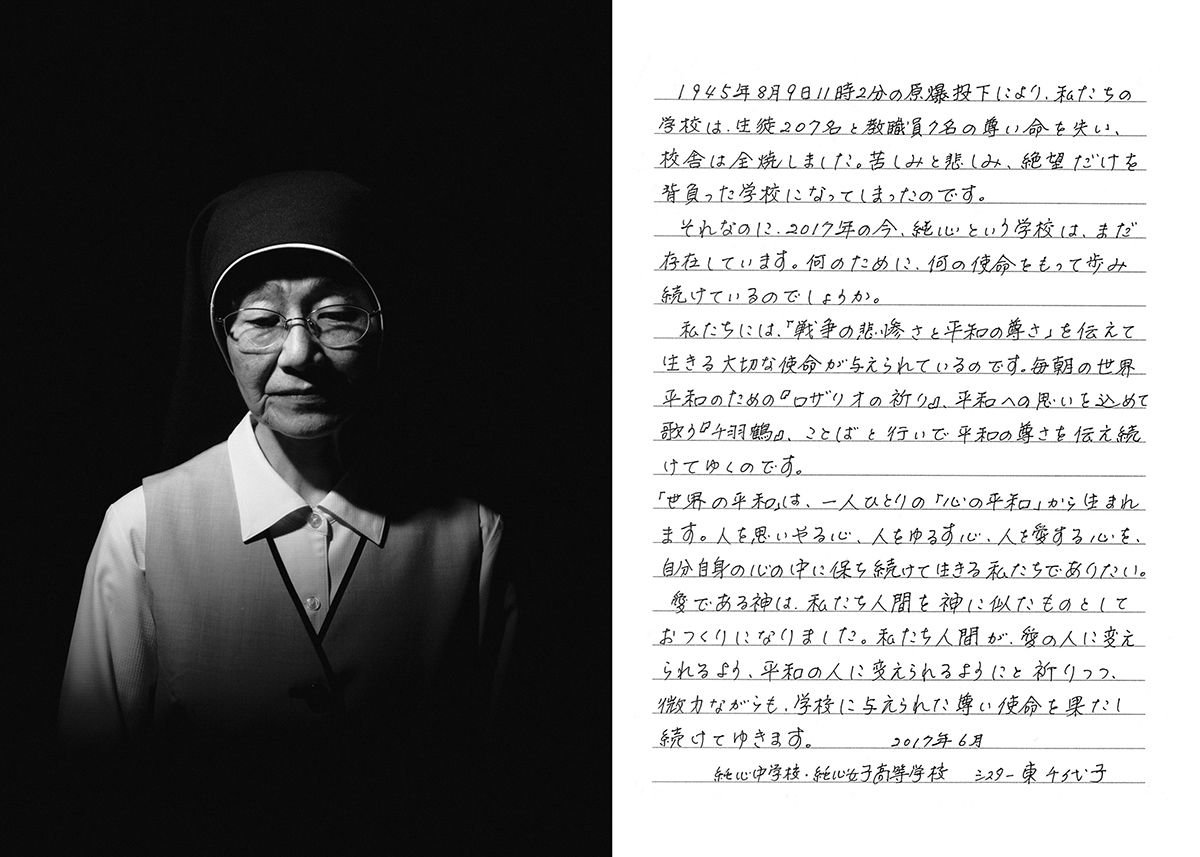 1945年8月9日11時2分の原爆投下により、私たちの
学校は、生徒207名と教職員7名の尊い命を失い、
校舎は全焼しました。苦しみと悲しみ、絶望だけを
背負った学校になってしまったのです。
それなのに、2017年の今、純心という学校は、まだ
存在しています。何のために、何の使命をもって歩み
続けているのでしょうか。
私たちには、「戦争の悲惨さと平和の尊さ」を伝えて
生きる大切な使命が与えられているのです。毎朝の世界
平和のための『ロザリオの祈り』、平和への思いを込めて
歌う『千羽鶴』、ことばと行いで平和の尊さを伝え続
けてゆくのです。
「世界の平和」は、一人ひとりの「心の平和」から生まれ
ます。人を思いやる心、人をゆるす心、人を愛する心を、
自分自身の心の中に保ち続けて生きる私たちでありたい。
愛である神は、私たち人間を神に似たものとして
おつくりになりました。私たち人間が、愛の人に変え
られるよう、平和の人に変えられるようにと祈りつつ、
微力ながらも、学校に与えられた尊い使命を果たし
続けてゆきます。 2017年6月
純心中学校・純心女子高等学校 シスター 東 千代子